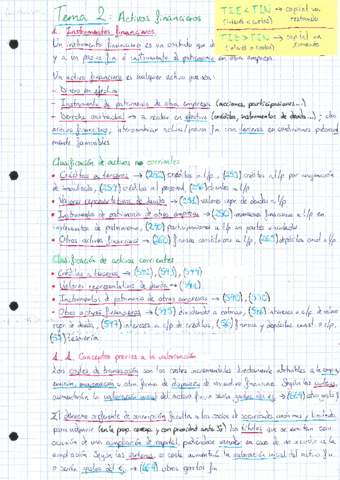 Tema 2: Activos financieros
TIE < TIN → capital va
(intereses < cuotas) restando
TIE > TIN → capital va
sumando
1. Instrumentos financieros
Un instrumento financiero es un contrato que da
y a un pasivo fin. o instrumento de patrimonio en otra empresa.
Un activo financiero es cualquier activo que sea:
- Dinero en efectivo
- Instrumento de patrimonio de otra empresa (acciones, participaciones...)
- Derecho contractual → a recibir en efectivo (créditos, instrumentos de deuda...); otro
activo financiero, intercambiar activos/pasivos fin. con terceros en condiciones potencial
mente favorables
Clasificación de activos no corrientes
• Créditos a terceros → (252) créditos a l/p, (253) créditos a l/p por enajenación
de inmovilizado, (254) créditos al personal a l/p
• Valores representativos de deuda → (251) valores repr. de deuda a l/p
• Instrumentos de patrimonio de otras empresas → (250) inversiones financieras a l/p en
instrumentos de patrimonio, (240) participaciones a l/p en partes vinculadas
• Otros activos financieros → (260) fianzas constituidas a l/p, (265) depósitos const. a l/p
Clasificación de activos corrientes
• Créditos a terceros → (542), (543), (544)
• Valores representativos de deuda → (541)
• Instrumentos de patrimonio de otras empresas → (540), (530)
• Otros activos financieros → (545) dividendos a cobrar, (546) intereses a c/p de valores
repr. de deuda, (547) intereses a c/p de créditos, (56) fianzas y depósitos const. a c/p,
(57) tesorería.
1. 1. Conceptos previos a la valoración
Los costes de transacción son los costes incrementales directamente atribuibles a la compra,
emisión, enajenación u otra forma de disposición de un activo financiero. Según las carteras,
aumentarán la valoración inicial del activo fin. o serán gastos del ej. → (669) otros gastos f.
El derecho preferente de suscripción faculta a los socios de sociedades anónimas y limitadas
para adquirir (en la prop. corresp. y con prioridad ante 3º) los títulos que se emitan con
ocasión de una ampliación de capital, pudiéndose vender en caso de no acudir a la
ampliación. Según las carteras, el coste aumentará la valoración inicial del activo fin.
o serán gastos del ej. → (669) otros gastos fin.